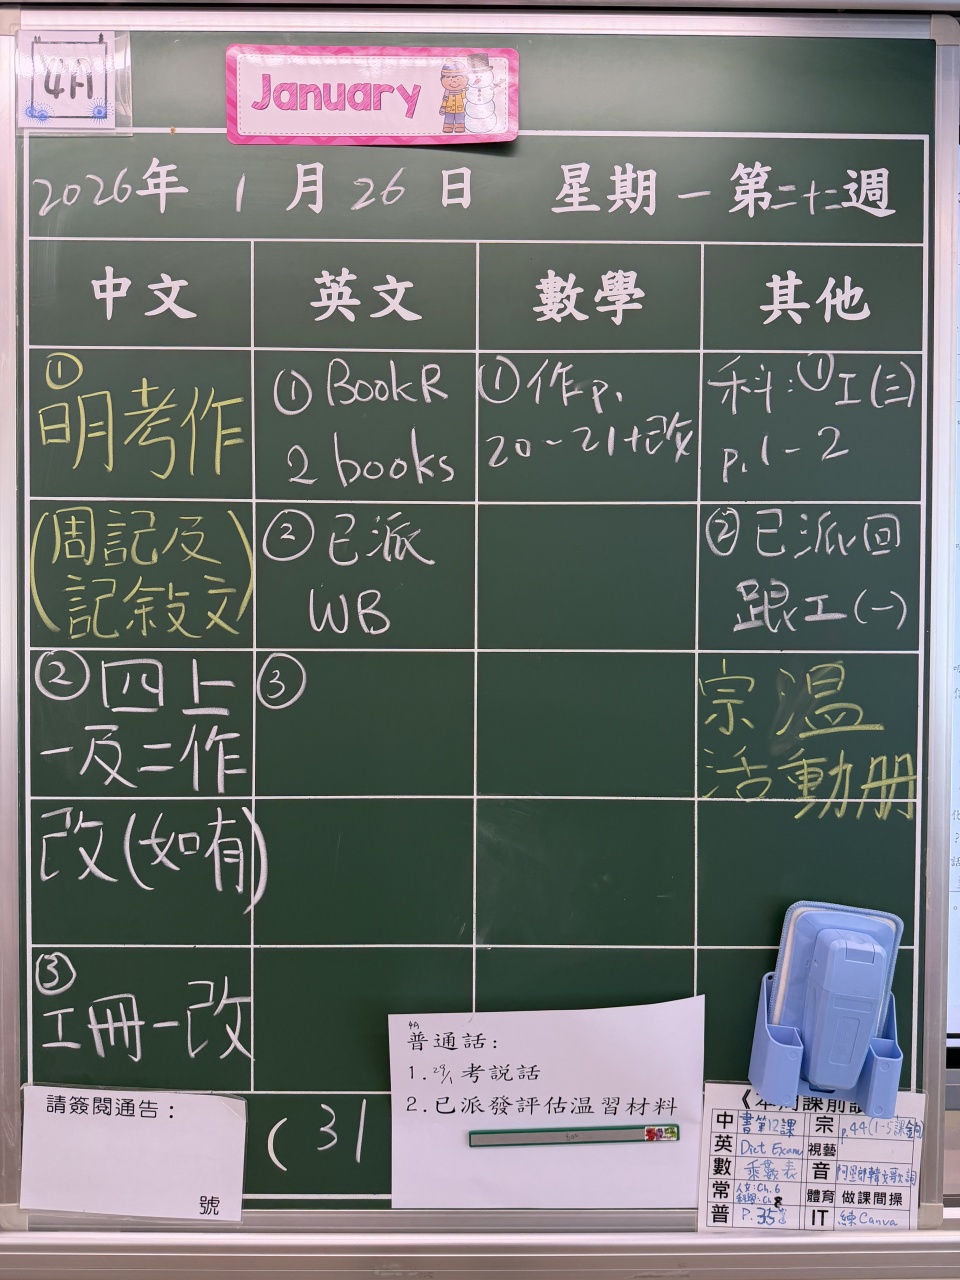 4A
January
2026年 1月26日 星期一 第二十二週
中文
英文
數學
其他
①
明考作
(周記及
記敘文)
② 四上
一及二作
改(如有)
③
工冊一改
① BookR
2 books
② 已派
WB
③
① 作p.
20-21+改
科:① 工(三)
p.1-2
② 已派回
跟工(一)
宗溫
活動册
(31
請簽閱通告:
號
4A
普通話:
1. 29/1 考說話
2.已派發評估温習材料
中 書第12課
英 Dict Exam
數 乘數表
常 人文:Ch.6
普 P.35
宗 p.44(1-5課
視藝
音
體育 做課間操
IT 練Canva